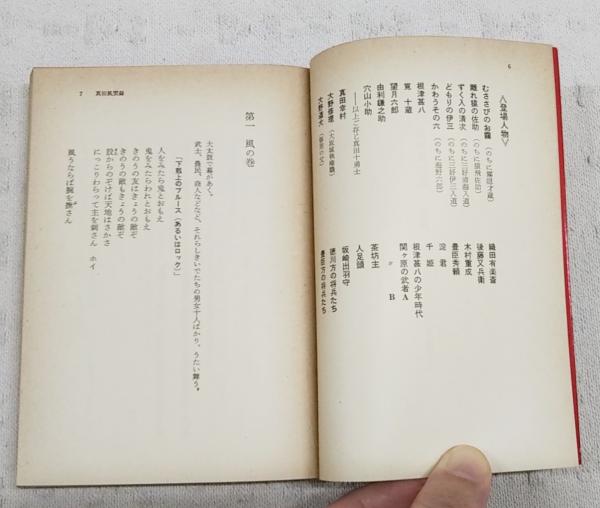 6
〈登場人物〉
むささびのお霧（のちに霧隠才蔵）
離れ猿の佐助（のちに猿飛佐助）
ずく入の清次（のちに三好清海入道）
どもりの伊三（のちに三好伊三入道）
かわうその六（のちに海野六郎）
根津甚八
筧 十蔵
望月六郎
由利鎌之助
穴山小助
――以上ご存じ真田十勇士
真田幸村
大野修理（大坂城執権職）
大野道犬
織田有楽斎
後藤又兵衛
木村重成
豊臣秀頼
淀君
千姫
根津甚八の少年時代
関ヶ原の武者A
〃 B
茶坊主
人足頭
坂崎出羽守
徳川方の将兵たち
豊臣方の将兵たち
7 真田風雲録
第一 風の巻
大太鼓で幕があく。
武士、農民、商人などなど、それらしきいでたちの男女十人ばかり、うたい舞う。
「下剋上のブルース（あるいはロック）」
人をみたら鬼とおもえ
鬼をみたらわれとおもえ
きのうの友はきょうの敵ぞ
きのうの敵もきょうの敵ぞ
股からのぞけば天地はさかさ
にっこりわらって主を刺さん ホイ
風うならば腕を撫さん